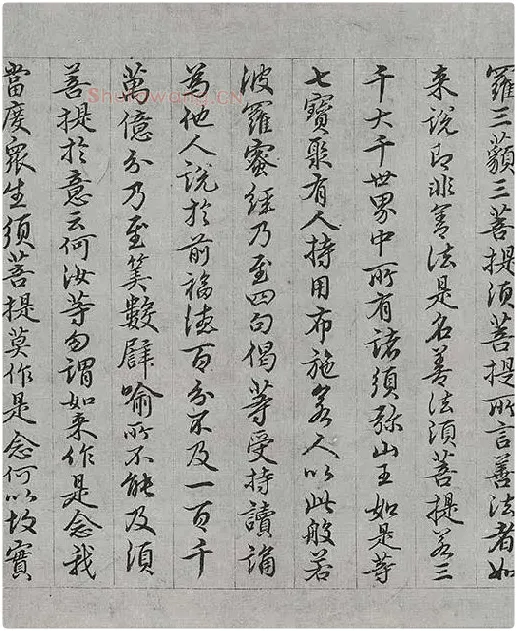 羅三藐三菩提須菩提所言善法者如
来說即非善法是名善法須菩提若三
千大千世界中所有諸須弥山王如是等
七寶聚有人持用布施若人以此般若
波羅蜜經乃至四句偈等受持讀誦
為他人說於前福德百分不及一百千
萬億分乃至筭數譬喻所不能及須
菩提於意云何汝等勿謂如来作是念我
當度眾生須菩提莫作是念何以故實